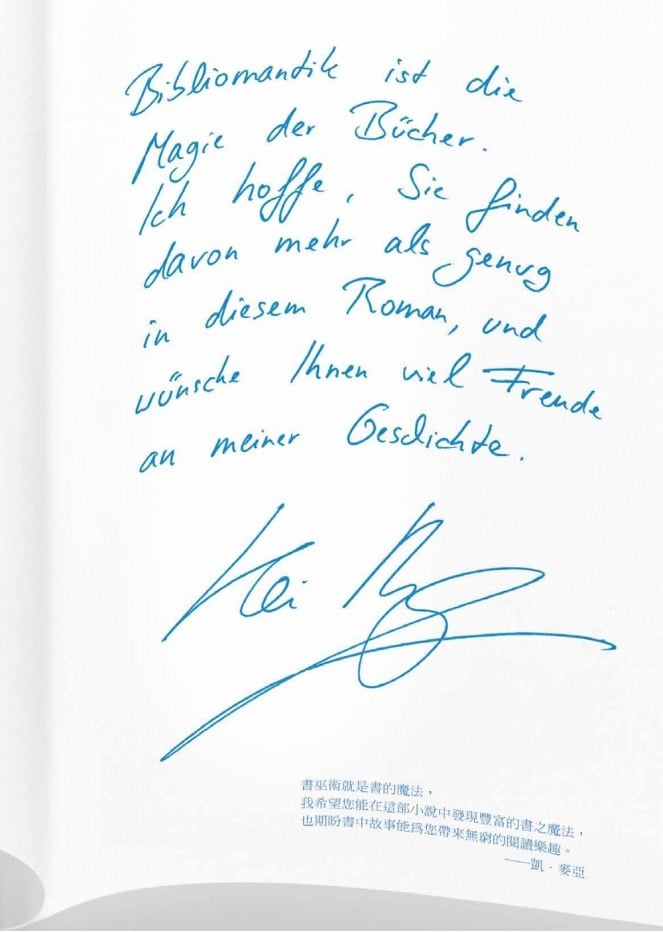 Bibliomantik ist die
Magie der Bücher.
Ich hoffe, Sie finden
davon mehr als genug
in diesem Roman, und
wünsche Ihnen viel Freude
an meiner Geschichte.
Kai
書巫術就是書的魔法，
我希望您能在這部小說中發現豐富的書之魔法，
也期盼書中故事能為您帶來無窮的閱讀樂趣。
——凱．麥亞